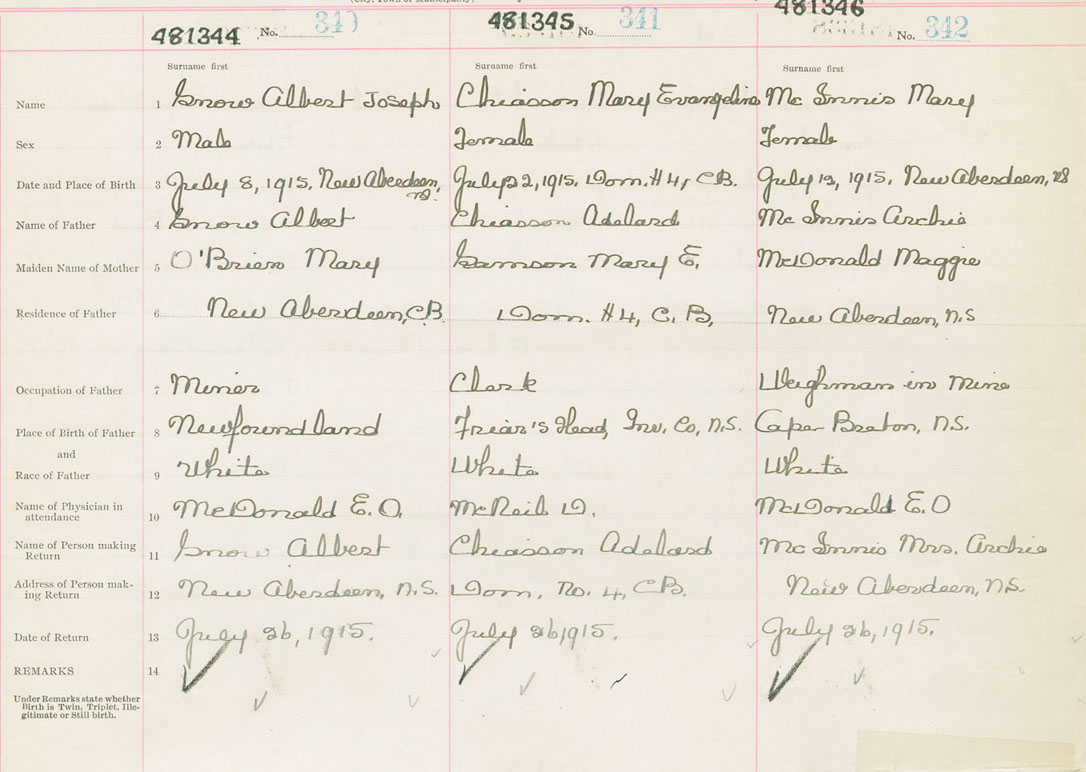 481344 No. 340 481345 No. 341 481346 No. 342
Surname first Surname first Surname first
Name 1 Snow Albert Joseph Chiasson Mary Evangeline Mc Innis Mary
Sex 2 Male Female Female
Date and Place of Birth 3 July 8, 1915, New Aberdeen, July 22, 1915, Dom. #4, C.B. July 13, 1915, New Aberdeen, NS
Name of Father 4 Snow Albert Chiasson Adelard Mc Innis Archie
Maiden Name of Mother 5 O'Brien Mary Samson Mary E. McDonald Maggie
Residence of Father 6 New Aberdeen, C.B. Dom. #4, C. B, New Aberdeen, N.S
Occupation of Father 7 Miner Clerk Weighman in Mine
Place of Birth of Father 8 Newfoundland Friar's Head, Inv. Co, N.S. Cape Breton, N.S.
and
Race of Father 9 White White White
Name of Physician in
attendance 10 McDonald E. O. McNeil D. McDonald E. O
Name of Person making
Return 11 Snow Albert Chiasson Adelard Mc Innis Mrs. Archie
Address of Person mak-
ing Return 12 New Aberdeen, N.S. Dom. No. 4, C.B. New Aberdeen, N.S.
Date of Return 13 July 26, 1915. July 26, 1915. July 26, 1915.
REMARKS 14
Under Remarks state whether
Birth is Twin, Triplet, Ille-
gitimate or Still birth.